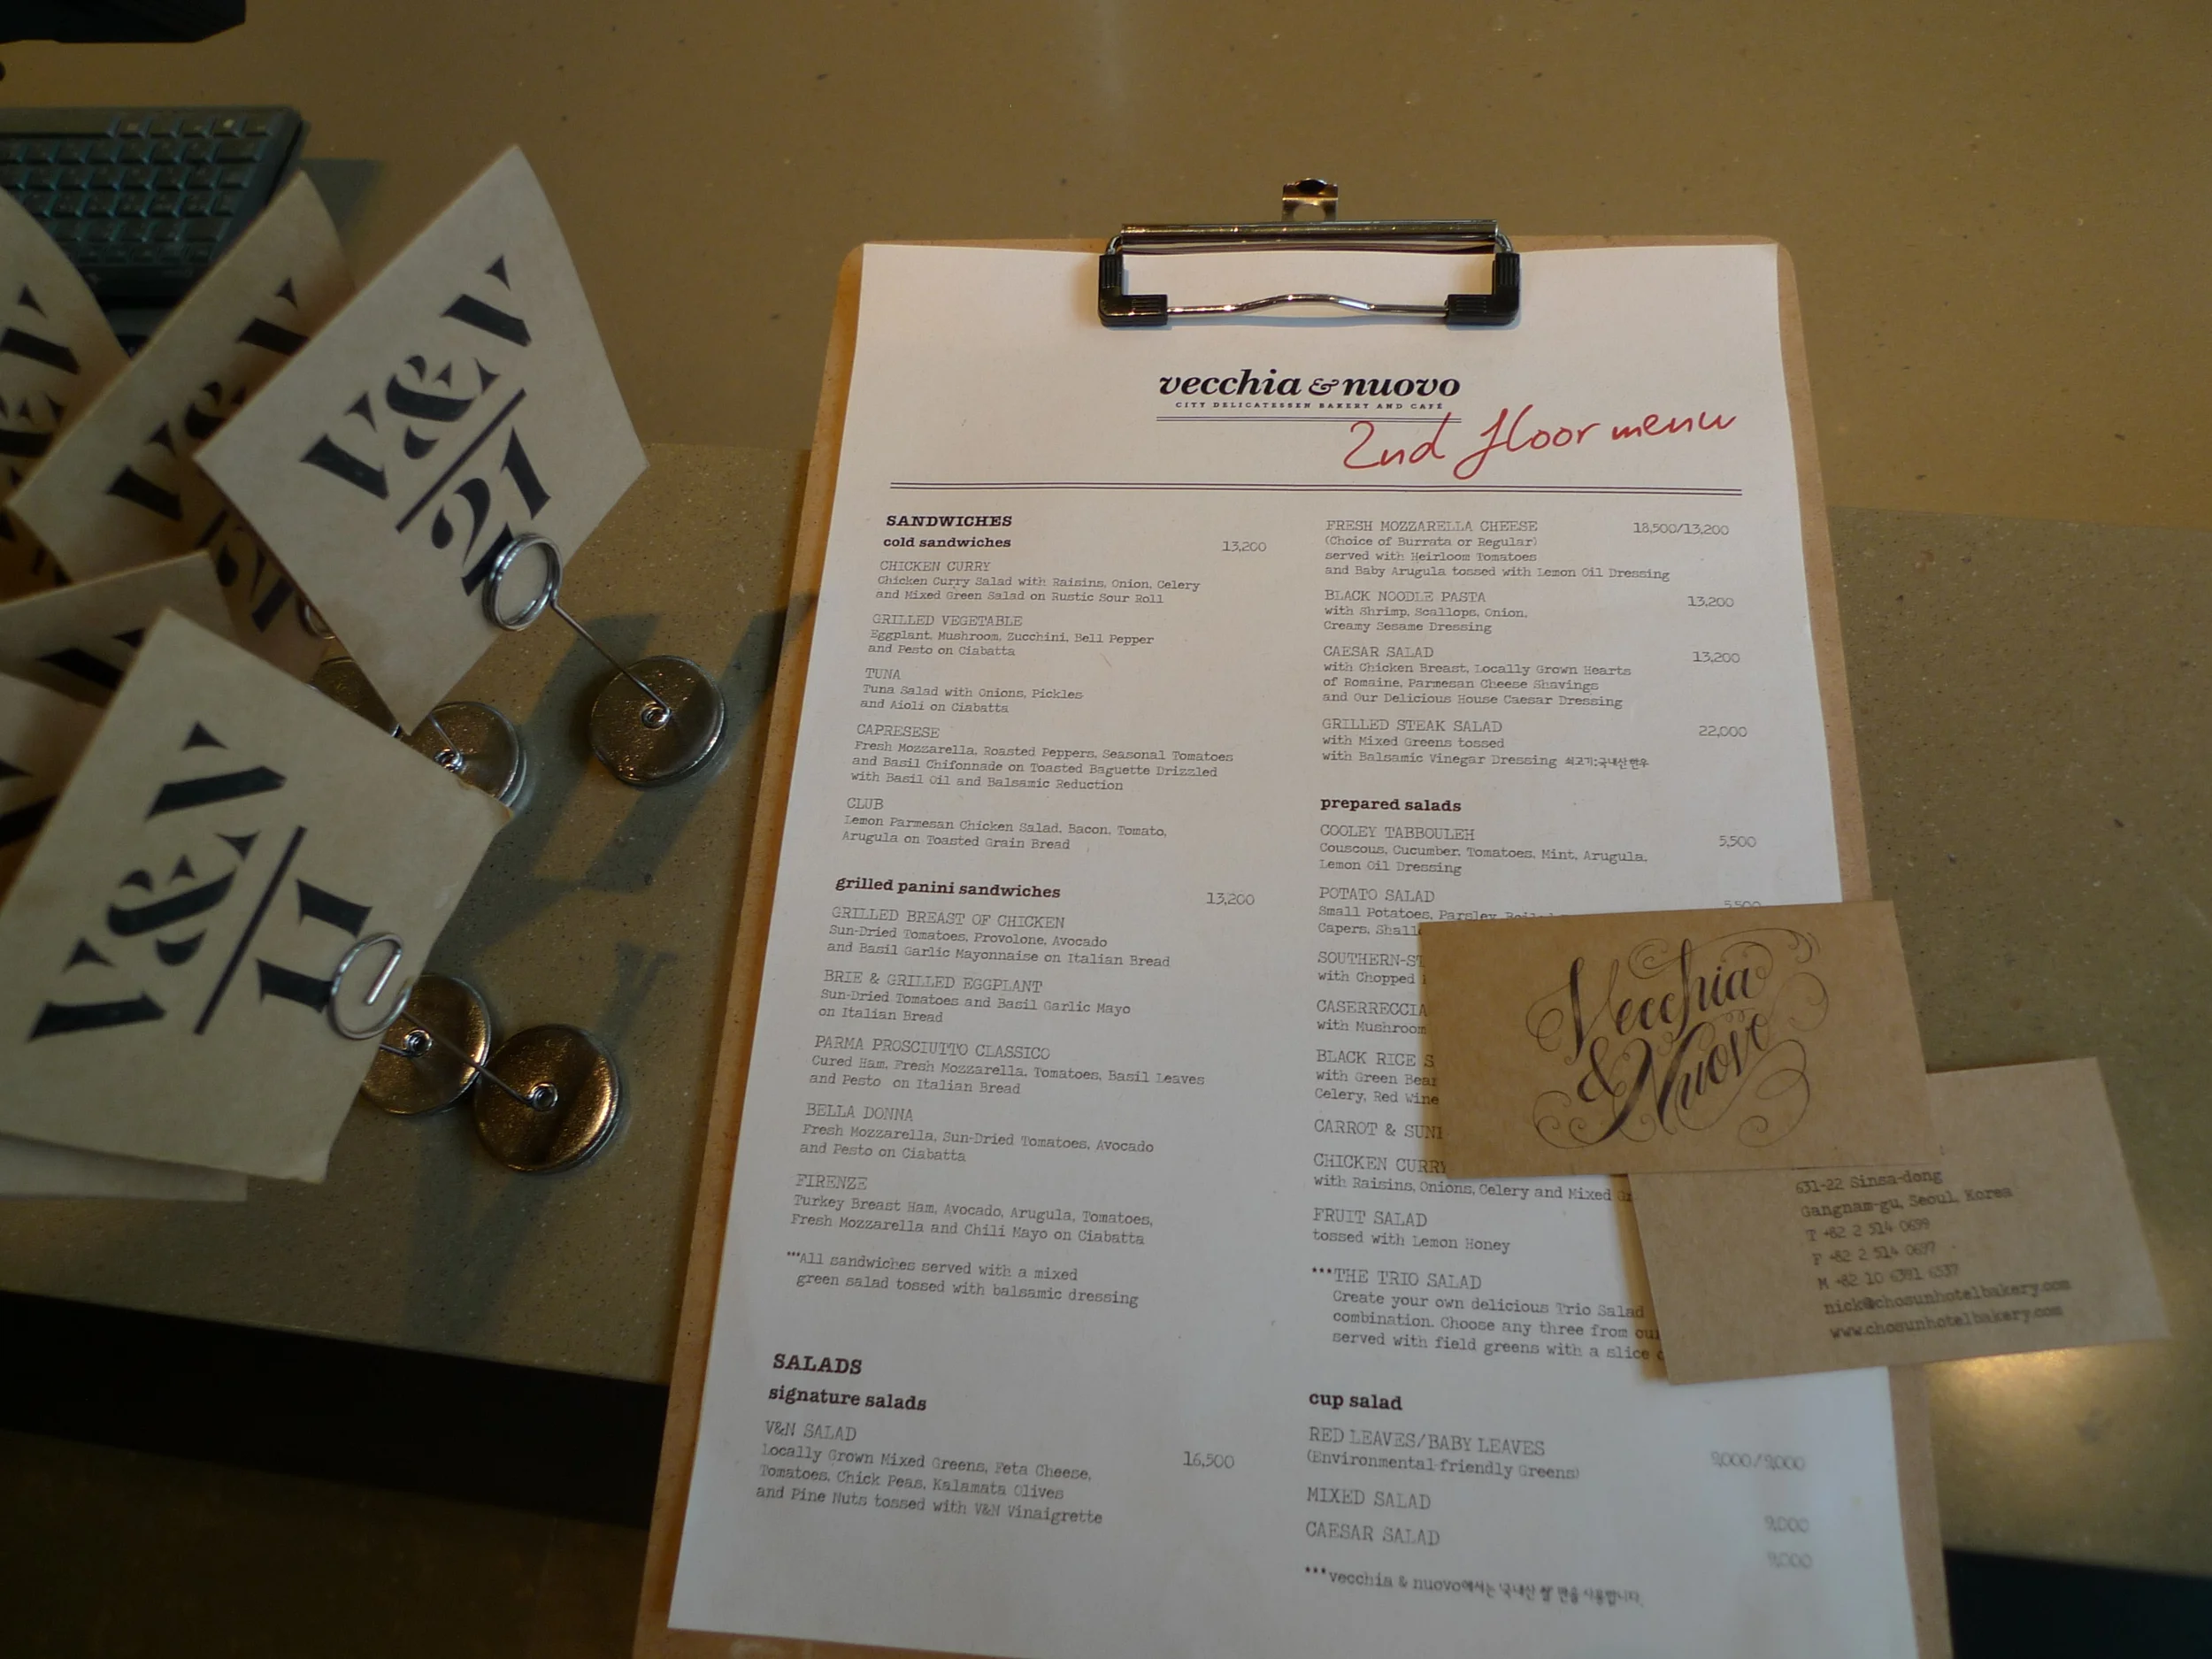 V&V
21
V&V
11
vecchia & nuovo
CITY DELICATESSEN BAKERY AND CAFÉ
2nd floor menu
SANDWICHES
cold sandwiches 13,200
CHICKEN CURRY
Chicken Curry Salad with Raisins, Onion, Celery
and Mixed Green Salad on Rustic Sour Roll
GRILLED VEGETABLE
Eggplant, Mushroom, Zucchini, Bell Pepper
and Pesto on Ciabatta
TUNA
Tuna Salad with Onions, Pickles
and Aioli on Ciabatta
CAPRESESE
Fresh Mozzarella, Roasted Peppers, Seasonal Tomatoes
and Basil Chifonnade on Toasted Baguette Drizzled
with Basil Oil and Balsamic Reduction
CLUB
Lemon Parmesan Chicken Salad, Bacon, Tomato,
Arugula on Toasted Grain Bread
grilled panini sandwiches 13,200
GRILLED BREAST OF CHICKEN
Sun-Dried Tomatoes, Provolone, Avocado
and Basil Garlic Mayonnaise on Italian Bread
BRIE & GRILLED EGGPLANT
Sun-Dried Tomatoes and Basil Garlic Mayo
on Italian Bread
PARMA PROSCIUTTO CLASSICO
Cured Ham, Fresh Mozzarella, Tomatoes, Basil Leaves
and Pesto on Italian Bread
BELLA DONNA
Fresh Mozzarella, Sun-Dried Tomatoes, Avocado
and Pesto on Ciabatta
FIRENZE
Turkey Breast Ham, Avocado, Arugula, Tomatoes,
Fresh Mozzarella and Chili Mayo on Ciabatta
***All sandwiches served with a mixed
green salad tossed with balsamic dressing
SALADS
signature salads
V&N SALAD
Locally Grown Mixed Greens, Feta Cheese, 16,500
Tomatoes, Chick Peas, Kalamata Olives
and Pine Nuts tossed with V&N Vinaigrette
FRESH MOZZARELLA CHEESE 18,500/13,200
(Choice of Burrata or Regular)
served with Heirloom Tomatoes
and Baby Arugula tossed with Lemon Oil Dressing
BLACK NOODLE PASTA 13,200
with Shrimp, Scallops, Onion,
Creamy Sesame Dressing
CAESAR SALAD 13,200
with Chicken Breast, Locally Grown Hearts
of Romaine, Parmesan Cheese Shavings
and Our Delicious House Caesar Dressing
GRILLED STEAK SALAD 22,000
with Mixed Greens tossed
with Balsamic Vinegar Dressing 쇠고기:국내산한우
prepared salads
COOLEY TABBOULEH 5,500
Couscous, Cucumber, Tomatoes, Mint, Arugula,
Lemon Oil Dressing
POTATO SALAD 5,500
Small Potatoes, Parsley,
Capers,
SOUTHERN-ST
with Chopped
CASERRECCIA
with Mushroom
BLACK RICE S
with Green Bean
Celery, Red Wine
CARROT & SUN
CHICKEN CURRY
with Raisins, Onions, Celery and Mixed
FRUIT SALAD
tossed with Lemon Honey
***THE TRIO SALAD
Create your own delicious Trio Salad
combination. Choose any three from our
served with field greens with a slice
cup salad
RED LEAVES/BABY LEAVES
(Environmental-friendly Greens)
MIXED SALAD
CAESAR SALAD
***vecchia & nuovo에서는 국내산 쌀 만을 사용합니다.
Vecchia
& Nuovo
631-22 Sinsa-dong
Gangnam-gu, Seoul, Korea
T +82 2 514 0699
F +82 2 514 0697
M +82 10
nick@chosunhotelbakery.com
www.chosunhotelbakery.com